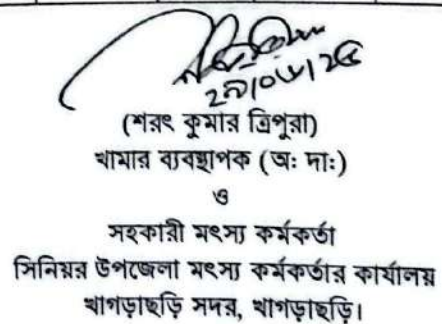 ২৯/০৬/২৫
(শরৎ কুমার ত্রিপুরা)
খামার ব্যবস্থাপক (অঃ দাঃ)
ও
সহকারী মৎস্য কর্মকর্তা
সিনিয়র উপজেলা মৎস্য কর্মকর্তার কার্যালয়
খাগড়াছড়ি সদর, খাগড়াছড়ি।